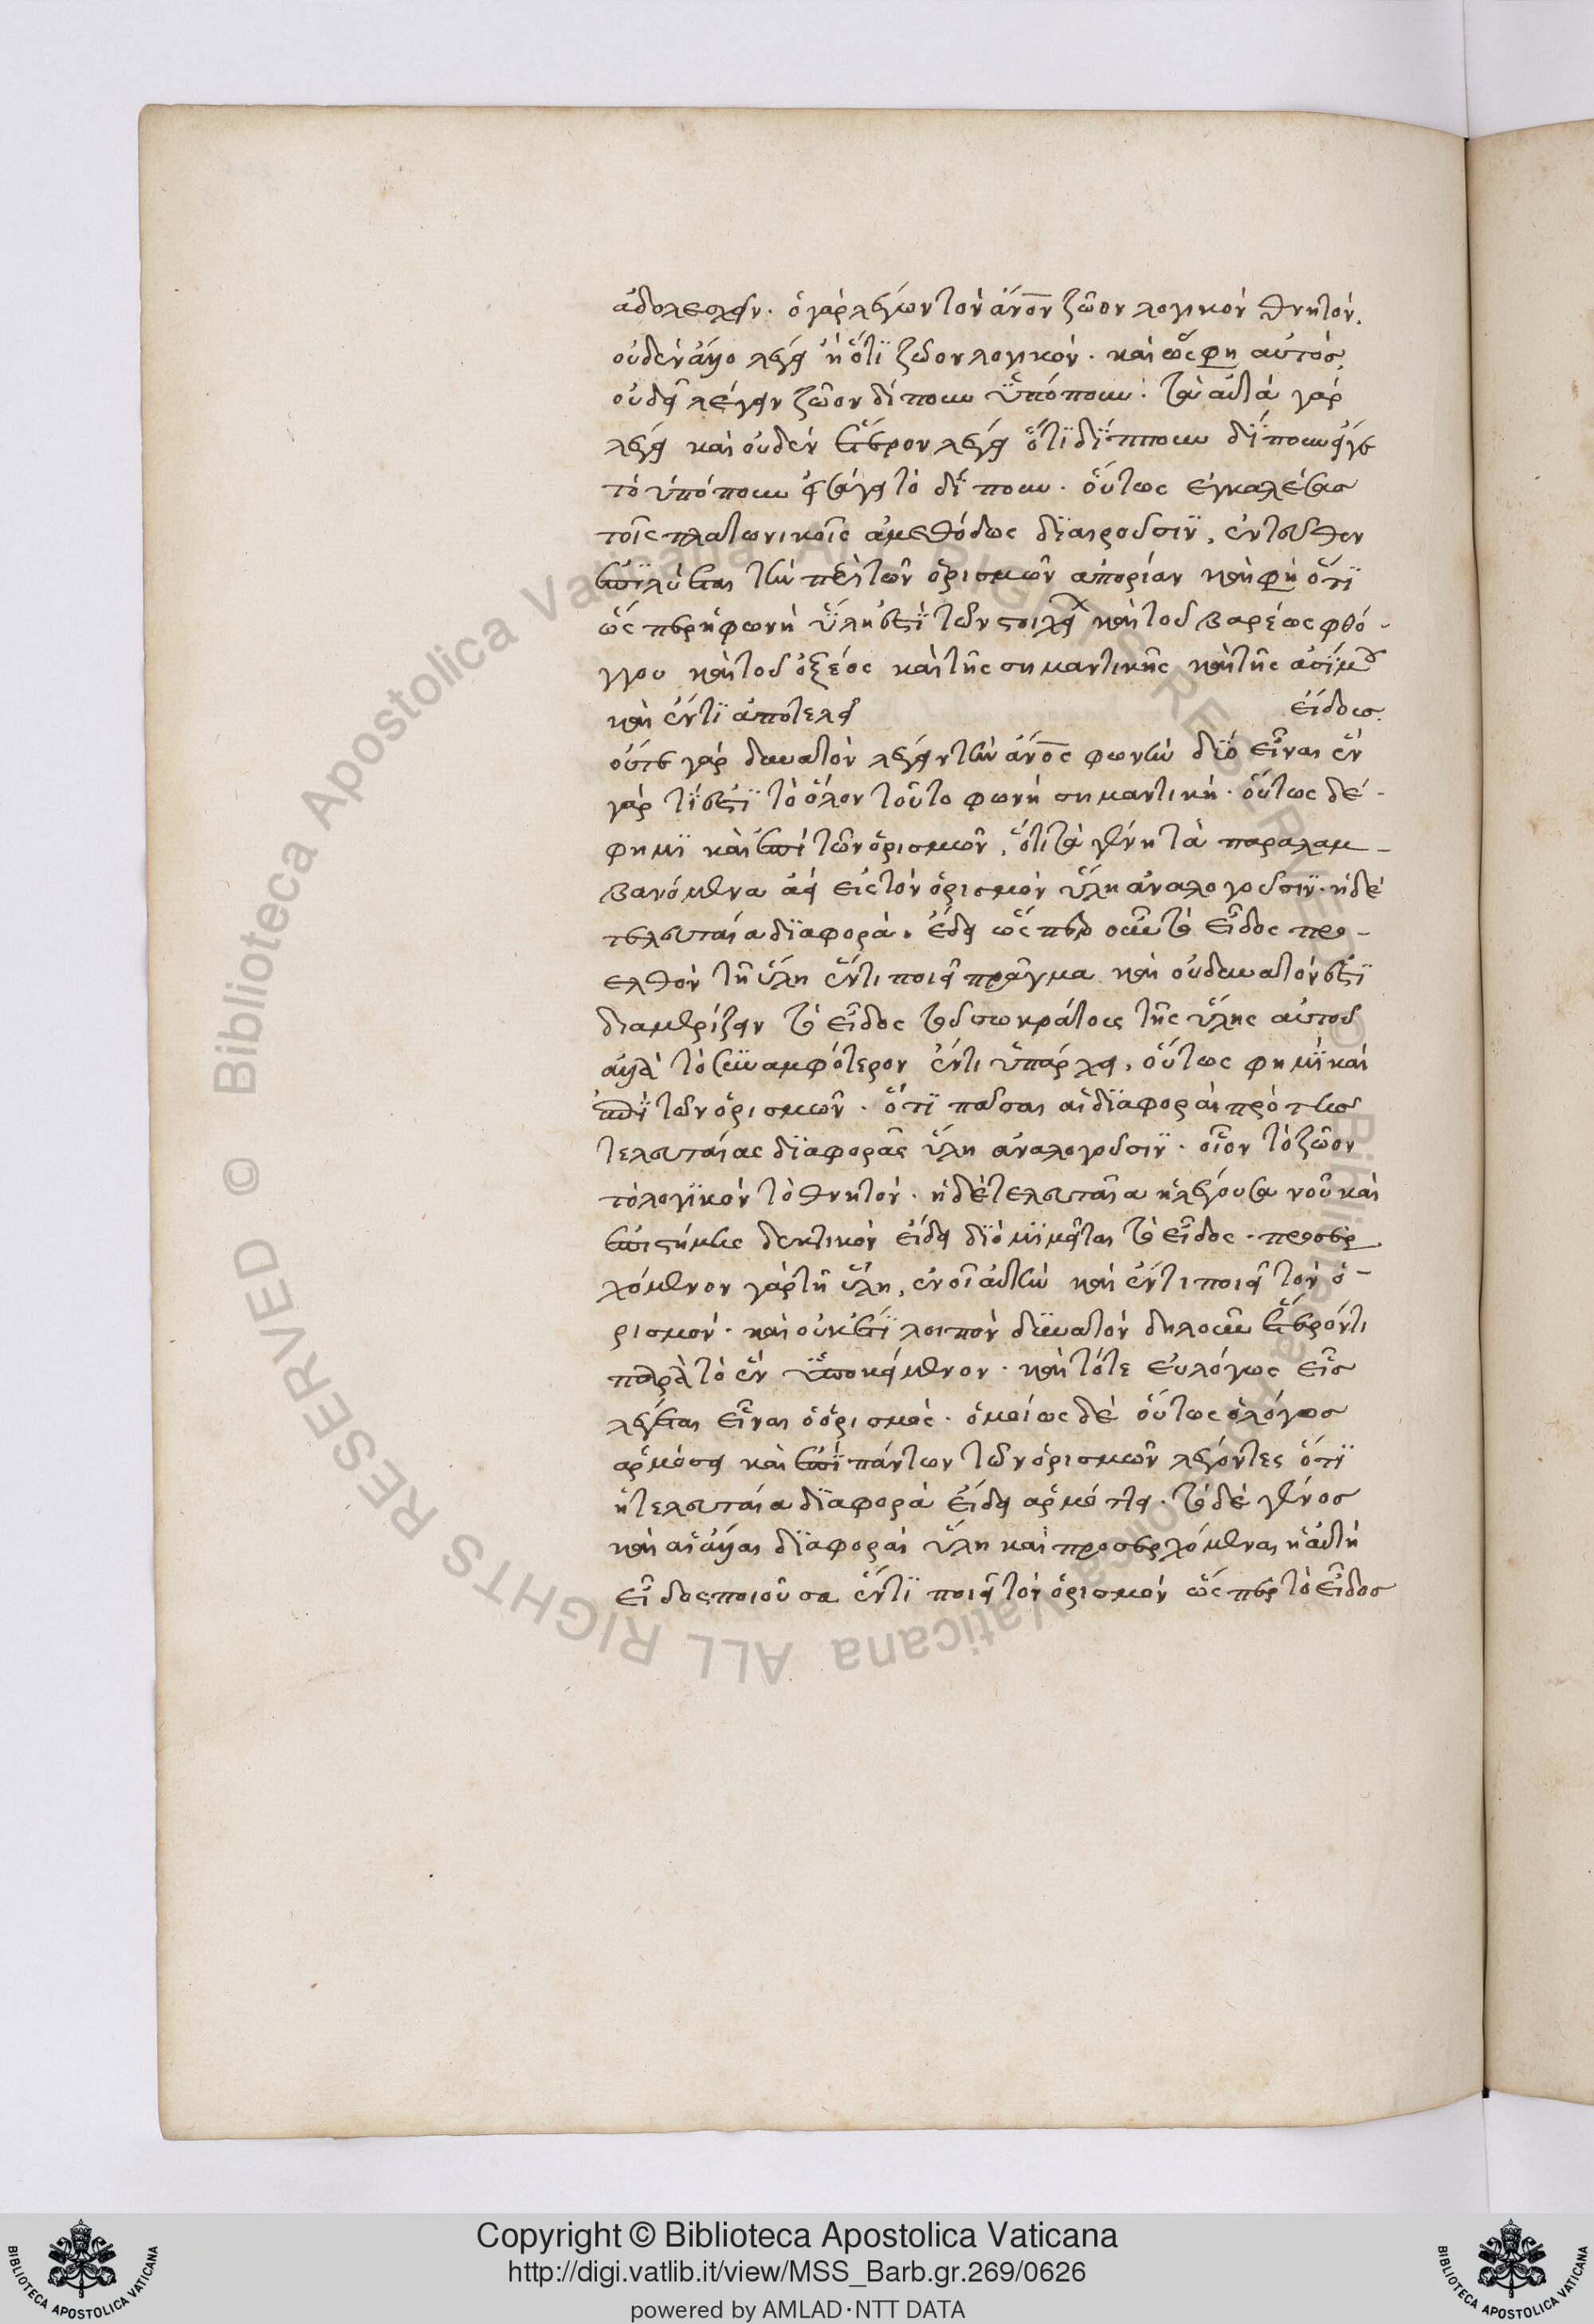 ἀδολεσχεῖν. ὁ γὰρ λέγων τὸν ἄνον ζῶον λογικὸν θνητὸν,
οὐδὲν ἄλλο λέγει ἢ ὅτι ζῶον λογικὸν. καὶ ὥς φη αὐτὸς,
οὐδεῖ λέγειν ζῶον δίπουν ὑπόπουν. τὰ αὐτὰ γὰρ
λέγει καὶ οὐδὲν ἕτερον λέγει ὅτι δίππουν δίπουν εἴγε
τὸ ὑπόπουν τὸ δίπουν. οὕτως ἐγκαλέσας
τοῖς πλατωνικοῖς ἀμεθόδως διαιροῦσιν, ἐντεῦθεν
ἐπιλύεται τὴν περὶ τῶν ὁρισμῶν ἀπορίαν καὶ φὴ ὅτι
ὥς περ ἡ φωνὴ ὕλη ἐστὶ τῶν στοιχεί καὶ τοῦ βαρέως φθό-
γγου καὶ τοῦ ὀξέος καὶ τῆς σημαντικῆς καὶ τῆς ἀσίμου
καὶ ἕν τι ἀποτελεῖ εἴδους.
οὔτε γὰρ δυνατὸν λέγειν τὴν ἄνος φωνὴν δύο εἶναι ἕν
γάρ τί ἐστι τὸ ὅλον τοῦτο φωνὴ σημαντικὴ. οὕτως δέ
φημι καὶ ἐπὶ τῶν ὁρισμῶν, ὅτι τὰ γένη τὰ παραλαμ-
βανόμενα ἀεὶ εἰς τὸν ὁρισμὸν ὕλη ἀναλογοῦσιν. ἡ δὲ
τελευταία διαφορὰ. εἴδει ὥς περ οὖν τὸ εἶδος προ-
ελθὸν τῆ ὕλη ἕν τι ποιεῖ πρᾶγμα καὶ οὐ δυνατόν ἐστι
διαμερίζειν τὸ εἶδος τοῦ σωκράτους τῆς ὕλης αὐτοῦ
ἀλλὰ τὸ συναμφότερον ἕν τι ὑπάρχει. οὕτως φημὶ καὶ
ἐπὶ τῶν ὁρισμῶν. ὅτι πᾶσαι αἱ διαφοραὶ πρὸ τῆς
τελευταίας διαφορᾶς ὕλη ἀναλογοῦσιν. οἷον τὸ ζῶον
τὸ λογικὸν τὸ θνητὸν. ἡ δὲ τελευταῖα ἡ λέγουσα νοῦ καὶ
ἐπιστήμης δεκτικὸν εἴδει διὸ μιμεῖται τὸ εἶδος. προσερ
χόμενον γὰρ τῆ ὕλη, ἑνοῖ αὐτὴν καὶ ἕν τι ποιεῖ τὸν ὁ-
ρισμὸν. καὶ οὐκ ἔτι λοιπὸν δυνατὸν δηλοῦν ἕτερόν τι
παρὰ τὸ ἓν ὑποκείμενον. καὶ τότε εὐλόγως εἷς
λέγεται εἶναι ὁ ὁρισμὸς. ὁμοίως δὲ οὕτως ὁ λόγος
ἁρμόσει καὶ ἐπὶ πάντων τῶν ὁρισμῶν λέγοντες ὅτι
ἡ τελευταία διαφορὰ εἴδει ἁρμόττει. τὸ δὲ γένος
καὶ αἱ ἄλλαι διαφοραὶ ὕλη καὶ προσερχόμεναι ἡ αὐτὴ
εἶδος ποιοῦσα ἕν τι ποιεῖ τὸν ὁρισμὸν ὥς περ τὸ εἶδος
Copyright © Biblioteca Apostolica Vaticana
http://digi.vatlib.it/view/MSS_Barb.gr.269/0626
powered by AMLAD·NTT DATA